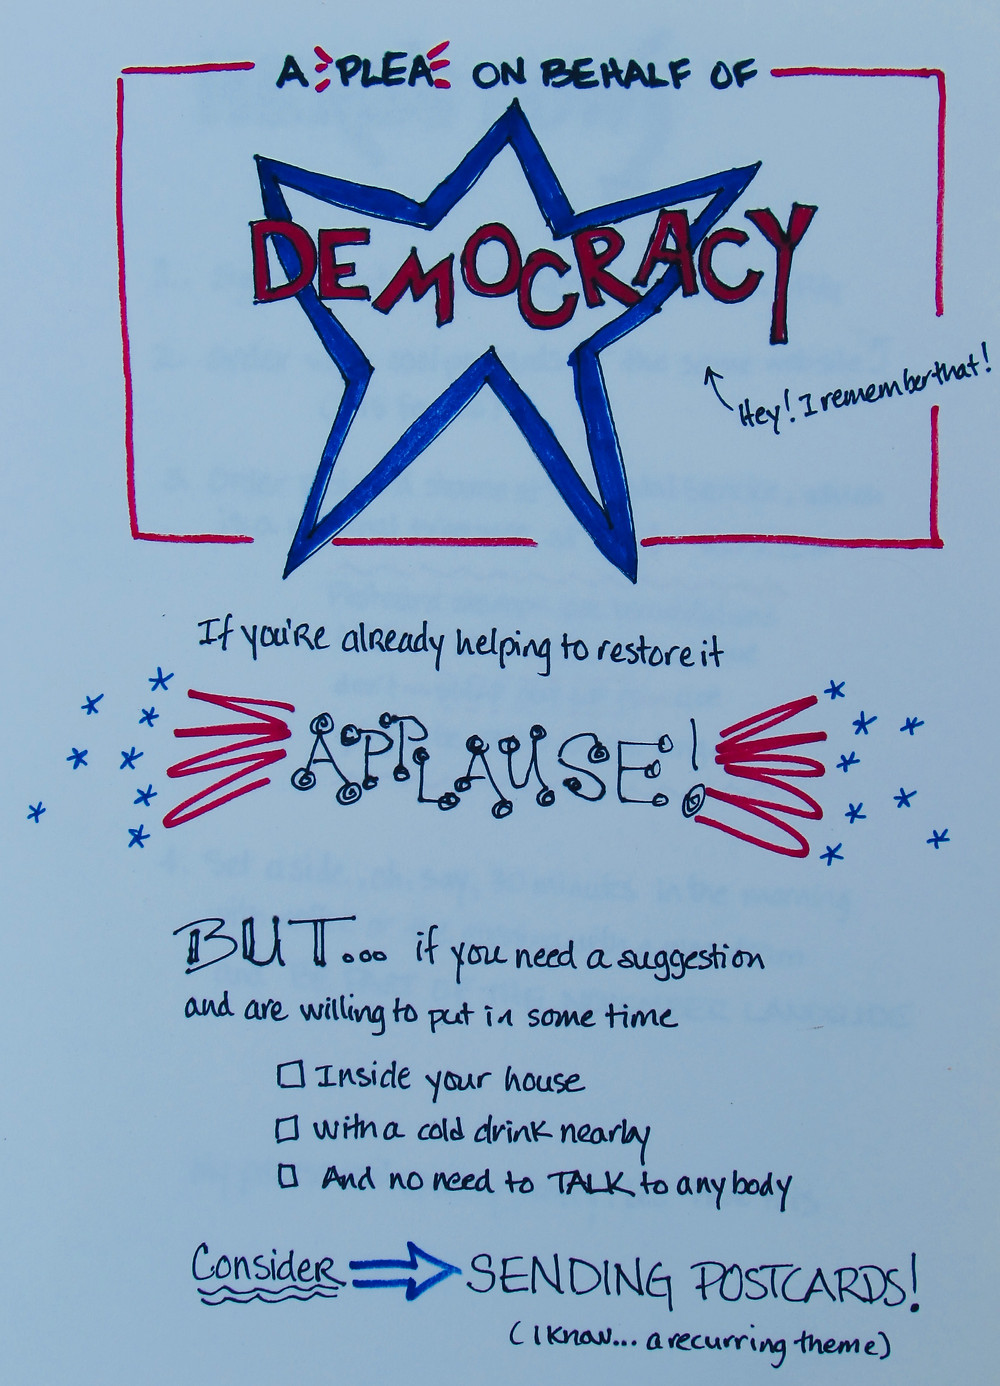 A PLEA ON BEHALF OF
DEMOCRACY
Hey! I remember that!
If you're already helping to restore it
APPLAUSE!
BUT... if you need a suggestion
and are willing to put in some time
Inside your house
with a cold drink nearby
And no need to TALK to anybody
Consider SENDING POSTCARDS!
(I know... a recurring theme)